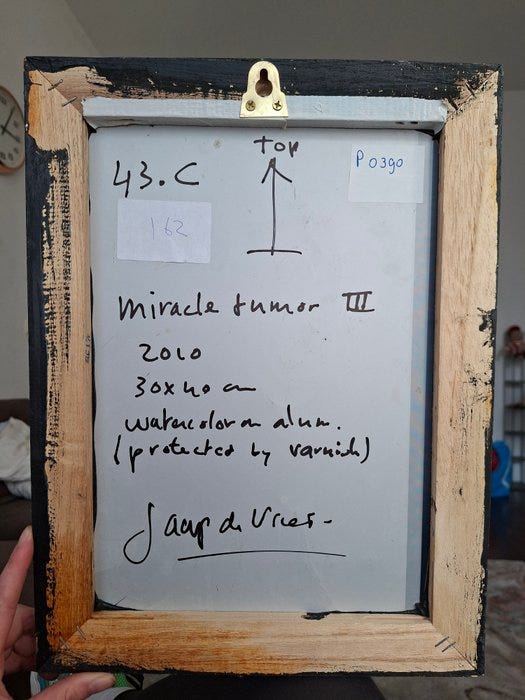 top
43.C
P0390
162
miracle tumor III
2010
30x40 cm
watercolor on alum.
(protected by varnish)
Jaap de Vries.